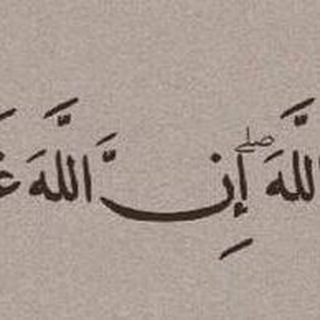 اللَّهَ ۖ إِنَّ اللَّهَ